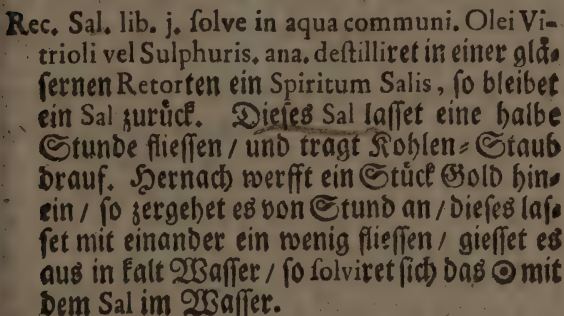 Rec. Sal. lib. j. ſolve in aqua communi. Olei Vi-
trioli vel Sulphuris. ana. deſtilliret in einer glä-
ſernen Retorten ein Spiritum Salis, ſo bleibet
ein Sal zurück. Dieſes Sal laſſet eine halbe
Stunde flieſſen / und tragt Kohlen-Staub
drauf. Hernach werfft ein Stück Gold hin-
ein / ſo zergehet es von Stund an / dieſes laſ-
ſet mit einander ein wenig flieſſen / gieſſet es
aus in kalt Waſſer / ſo ſolviret ſich das ☉ mit
dem Sal im Waſſer.